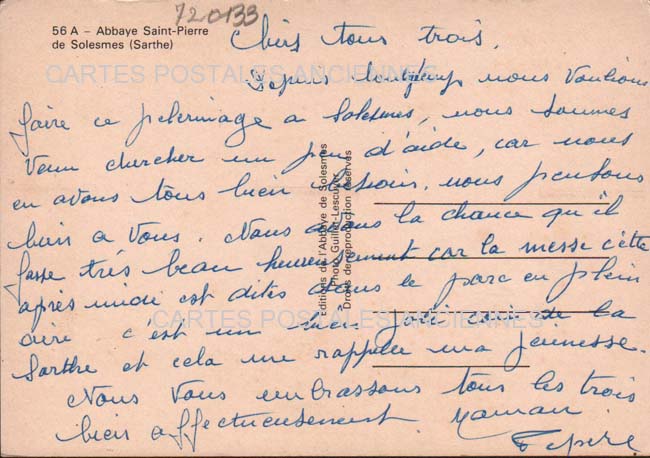 720133
56 A - Abbaye Saint-Pierre
de Solesmes (Sarthe)
Chers tous trois.
CARTES POSTALES ANCIENNES
Depuis longtemps nous voulions
faire ce pelerinage a Solesmes, nous sommes
venu chercher un peu d'aide, car nous
en avons tous bien besoin. nous pensons
bien a vous. Nous avons la chance qu'il
fasse très beau heureusement car la messe c'ette
après midi est dites dans le parc en plein
aire c'est un bien joli coin de la
Sarthe et cela me rappelle ma jeunesse.
Nous vous embrassons tous les trois
bien affectueusement. Maman
Editions de l'Abbaye de Solesmes
Photo Guillot-Lescuyer
Droits de reproduction réservés
CARTES POSTALES ANCIENNES